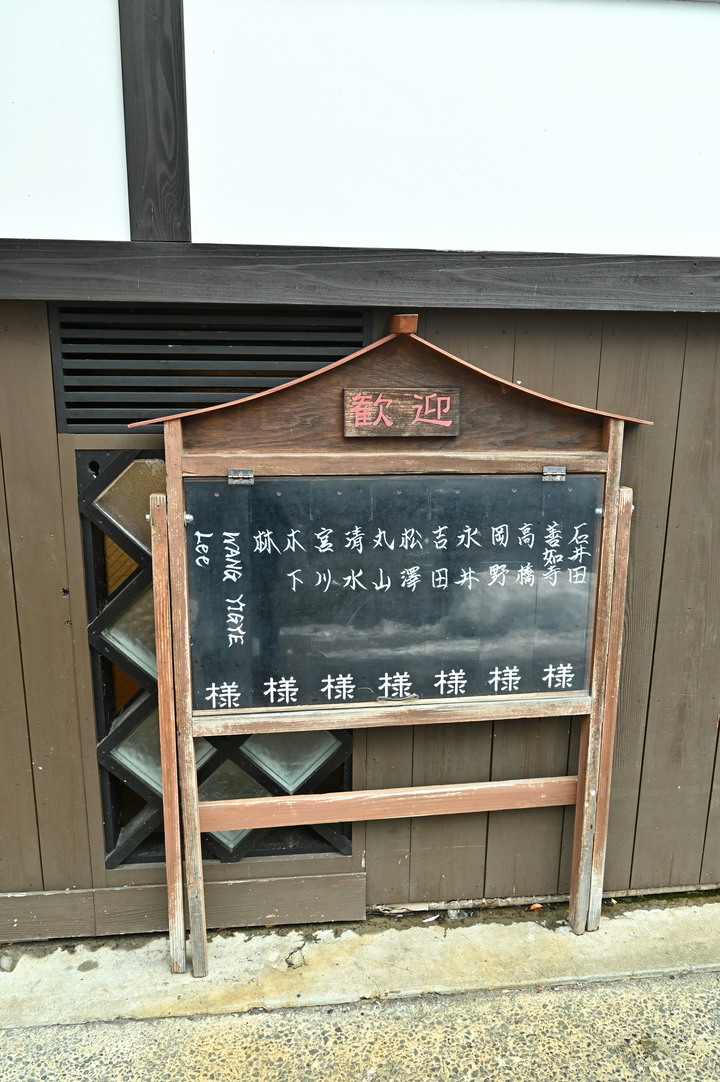 歓迎
石井田
善如寺
高橋
岡野
永井
吉田
松澤
丸山
清水
宮川
木下
林
WANG YIGYE
Lee
様 様 様 様 様 様 様